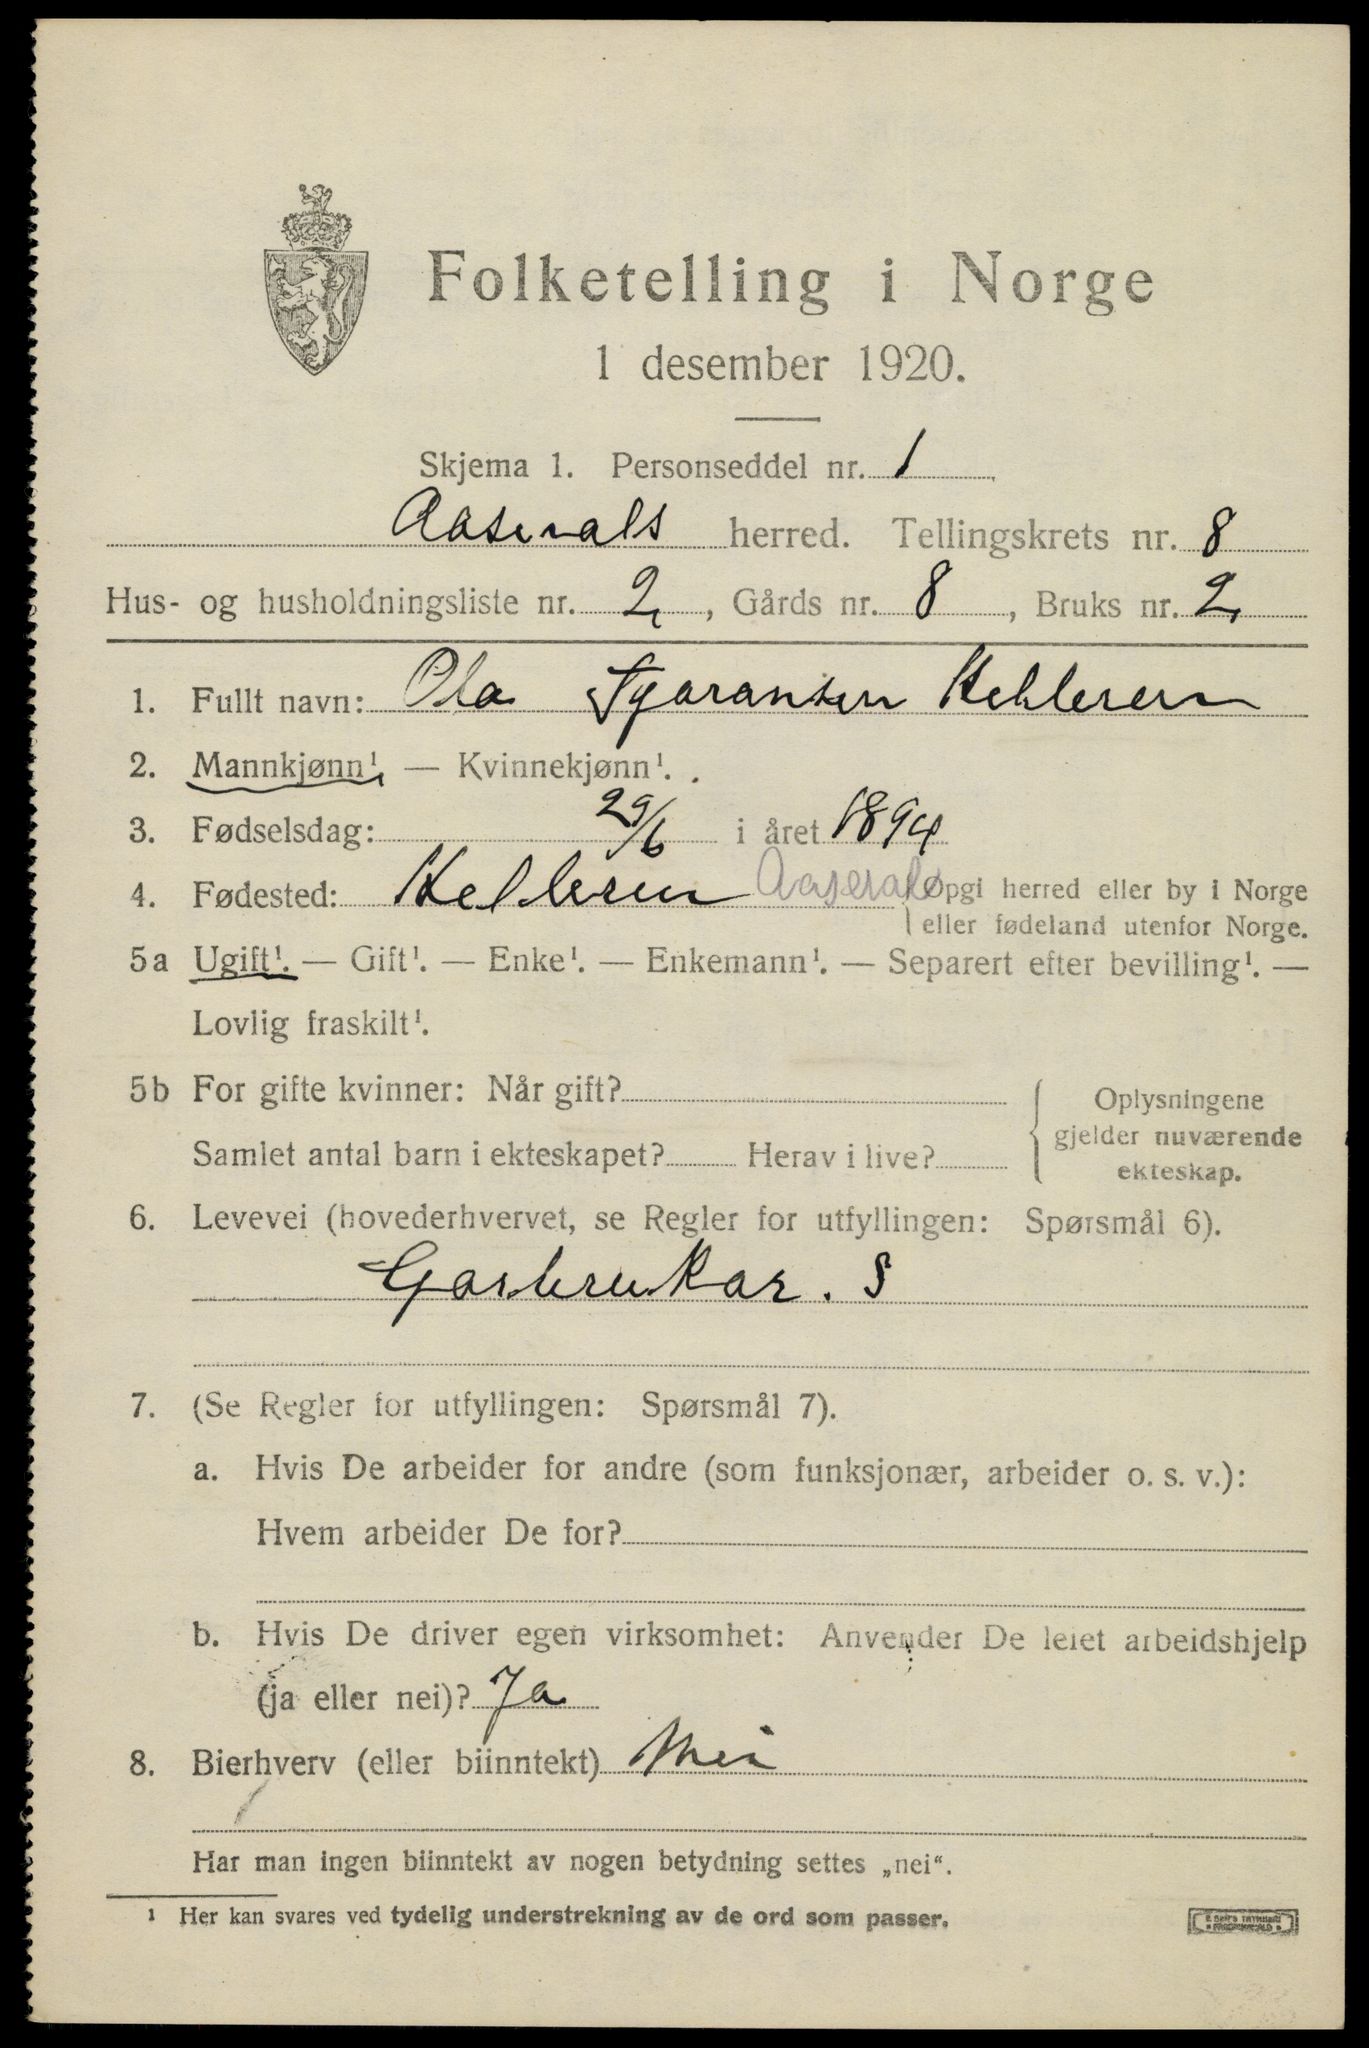 Folketelling i Norge
1 desember 1920.
Skjema 1. Personseddel nr. 1
Aaserals herred. Tellingskrets nr. 8
Hus- og husholdningsliste nr. 2, Gårds nr. 8, Bruks nr. 2
1. Fullt navn: Ola Tjaransen Helleren
2. Mannkjønn¹ — Kvinnekjønn¹.
3. Fødselsdag: 29/6 i året 1894
4. Fødested: Helleren Aaserals Opgi herred eller by i Norge
eller fødeland utenfor Norge.
5a Ugift¹. — Gift¹. — Enke¹. — Enkemann¹. — Separert efter bevilling¹. —
Lovlig fraskilt¹.
5b For gifte kvinner: Når gift?
Samlet antal barn i ekteskapet? Herav i live?
Oplysningene
gjelder nuværende
ekteskap.
6. Levevei (hovederhvervet, se Regler for utfyllingen: Spørsmål 6).
Garbrukar. S
7. (Se Regler for utfyllingen: Spørsmål 7).
a. Hvis De arbeider for andre (som funksjonær, arbeider o. s. v.):
Hvem arbeider De for?
b. Hvis De driver egen virksomhet: Anvender De leiet arbeidshjelp
(ja eller nei)? Ja
8. Bierhverv (eller biinntekt) Nei
Har man ingen biinntekt av nogen betydning settes „nei“.
¹ Her kan svares ved tydelig understrekning av de ord som passer.